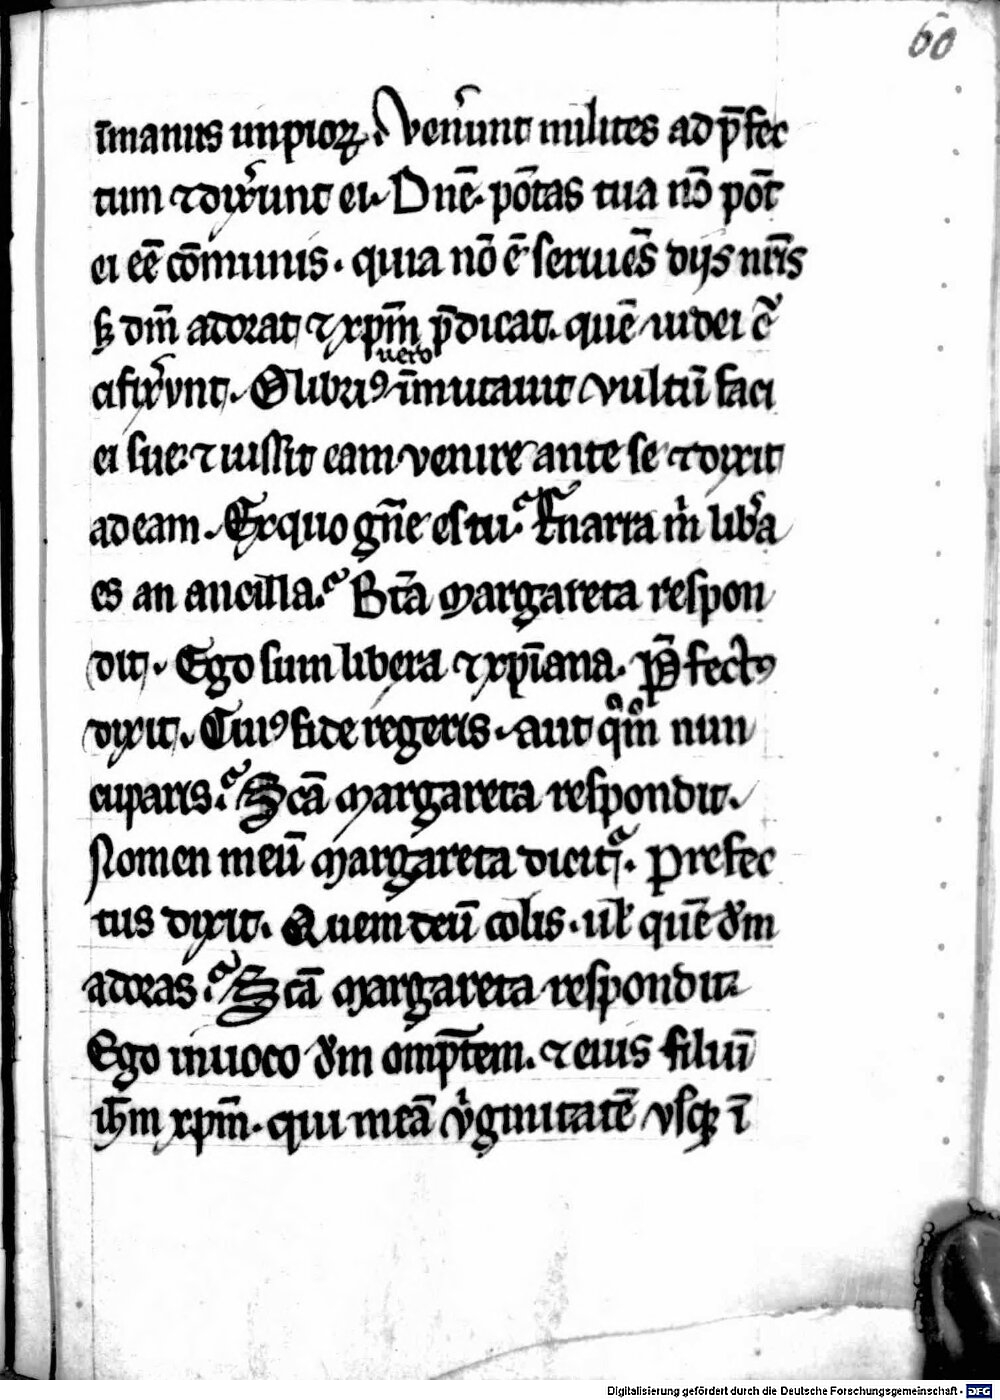 60
īmanus impioꝝ. Veneꝛunt milites ad p̄fec
tum ⁊ dixerunt ei. Dn̄e. po̅tas tua nō pōt
ei eē cōmunis. quia nō ē seruiēs dijs nr̄is
sꝫ dm̄ adorat ⁊ xp̄m p̄dicat. quē iudei c̄
cifixerunt. Olibriꝰ uero īmutauit vultū faci
ei sue. ⁊ iussit eam venire ante se ⁊ dixit
ad eam. Ex quo gn̄e es tu? Enarra m̍ lib̄a
es an ancilla? Bt̄a margareta respon
dit. Ego sum libera ⁊ xp̄iana. P̄fectꝰ
dixit. Cuiꝰ fide regeris. aut qͦm̊ nun
cuparis? Sc̄a margareta respondit.
Nomen meū margareta dicit᷑. Prefec
tus dixit. Quem deū colis. ul̵ quē dm̄
adoras? Sc̄a margareta respondit.
Ego inuoco dm̄ omp̄tem. ⁊ eius filiū
ih̄m xp̄m. qui meā v̍ginitatē vsqꝫ ī
Digitalisierung gefördert durch die Deutsche Forschungsgemeinschaft - DFG